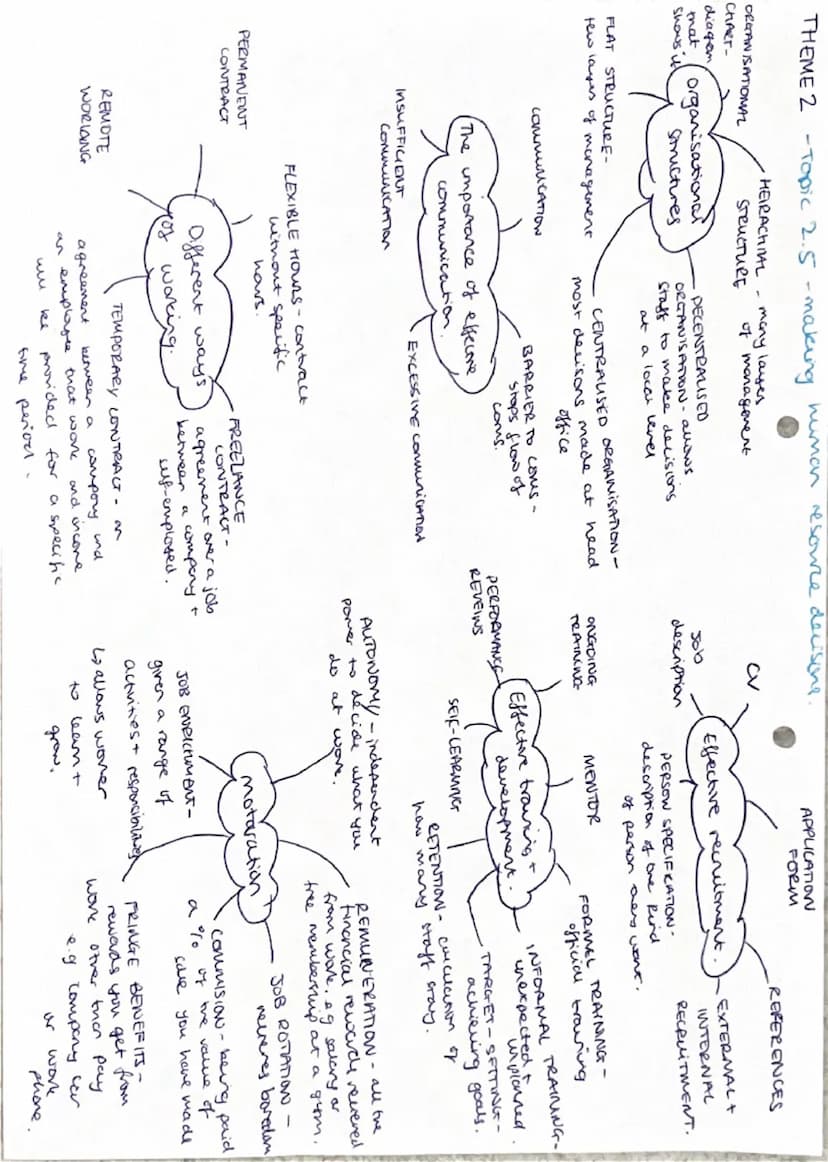 THEME 2 - Topic 2.5 - making human resource decisions.
ORGANISATIONAL
CHART -
diagram
that
shows it
Organisational
structures
HEIRACHIAL - many layers
STRUCTURE of management
FLAT STRUCTURE -
few layers of management
DECENTRALISED
ORGANISATION - allows
staff to make decisions
at a local level
CENTRALISED ORGANISATION -
most decisions made at head
office
The importance of effective
communication.
COMMUNICATION
INSUFFICIENT
COMMUNICATION
BARRIER TO COMS -
stops flow of
coms.
EXCESSIVE COMMUNICATION
Different ways
of working.
PERMANENT
CONTRACT
FLEXIBLE HOURS - contract
without specific
hours.
REMOTE
WORKING
FREELANCE
CONTRACT -
agreement over a job
between a company +
self-employed.
TEMPORARY CONTRACT - an
agreement between a company and
an employee that work and income
will be provided for a specific
time period.
Effective recruitment.
CV
Job
description
APPLICATION
FORM
REFERENCES
PERSON SPECIFICATION -
description of the kind
of person they want.
EXTERNAL +
INTERNAL
RECRUITMENT.
Effective training +
development.
ONGOING
TRAINING
MENTOR
PERFORMANCE
REVEIWS
SELF-LEARNING
FORMEL TRAINING -
official training
INFORMAL TRAINING -
unexpected +
unplanned.
TARGET-SETTING -
achieving goals.
RETENTION - calculation of
how many staff stay.
Motivation
AUTONOMY - independent
power to decide what you
do at work.
REMUNERATION - all the
financial rewards recieved
from work, e.g salary or
free membership at a gym.
JOB ENRICHMENT -
given a range of
activities + responsibilities
↳ allows worker
to learn +
grow.
JOB ROTATION -
relieves boredom
COMMISION - being paid
a % of the value of
sale you have made
FRINGE BENEFITS -
rewards you get from
work other than pay
e.g company car
or work
phone.